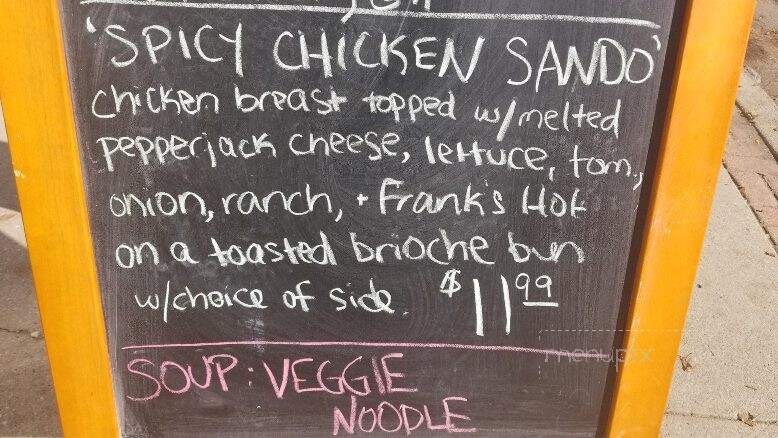 'SPICY CHICKEN SANDO'
chicken breast topped w/melted
pepperjack cheese, lettuce, tom.,
onion, ranch, + Frank's Hot
on a toasted brioche bun
w/choice of side. $11.99
SOUP: VEGGIE
NOODLE
menupix